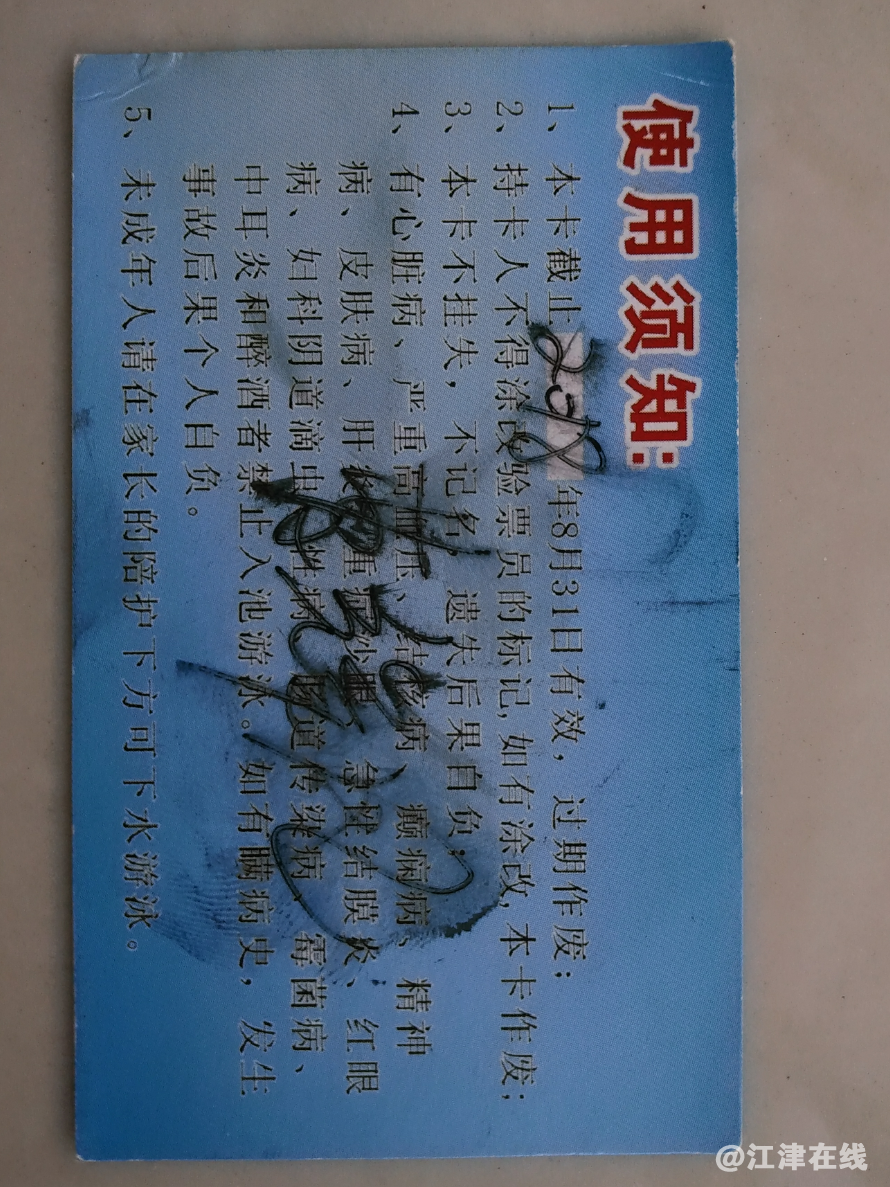 使用须知:
1、本卡截止2018年8月31日有效，过期作废；
2、持卡人不得涂改验票员的标记,如有涂改,本卡作废；
3、本卡不挂失，不记名，遗失后果自负；
4、有心脏病、严重高血压、结核病、癫痫病、精神
病、皮肤病、肝炎、重症沙眼、急性结膜炎、红眼
病、妇科阴道滴虫、性病、肠道传染病、霉菌病、
中耳炎和醉酒者禁止入池游泳。如有瞒病史，发生
事故后果个人自负。
5、未成年人请在家长的陪护下方可下水游泳。
@江津在线